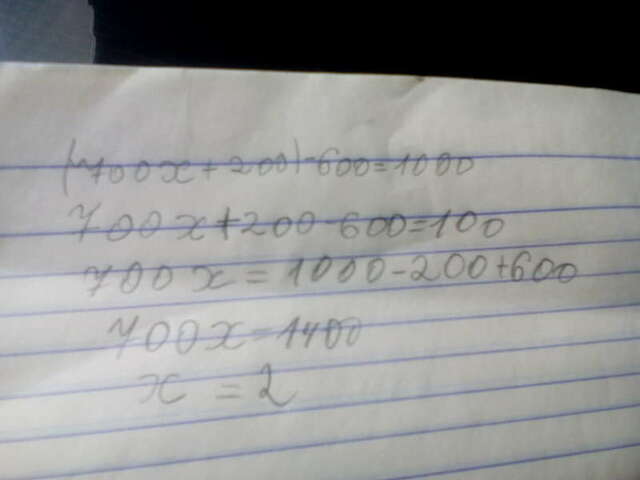 (700x+200)-600=1000
700x+200-600=100
700x=1000-200+600
700x=1400
x=2